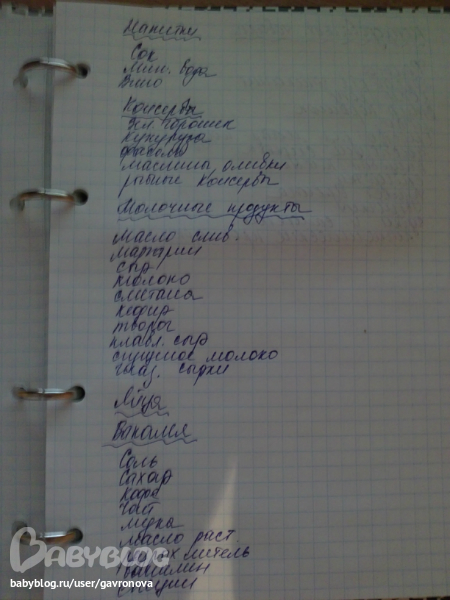 Напитки
Сок
Мин. вода
Вино
Консервы
Зел. горошек
кукуруза
фасоль
маслины оливки
рыбные консервы
Молочные продукты
Масло слив.
маргарин
сыр
молоко
сметана
кефир
творог
плавл. сыр
сгущеное молоко
глаз. сырки
Яйца
Бакалея
Соль
Сахар
Кофе
Чай
мука
Масло раст.
разрыхлитель
ванилин
специи
BABYBLOG
babyblog.ru/user/gavronova